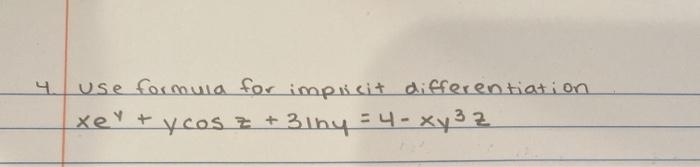 4. Use formula for implicit differentiation
xeʸ + y cos z + 3lny = 4 - xy³z